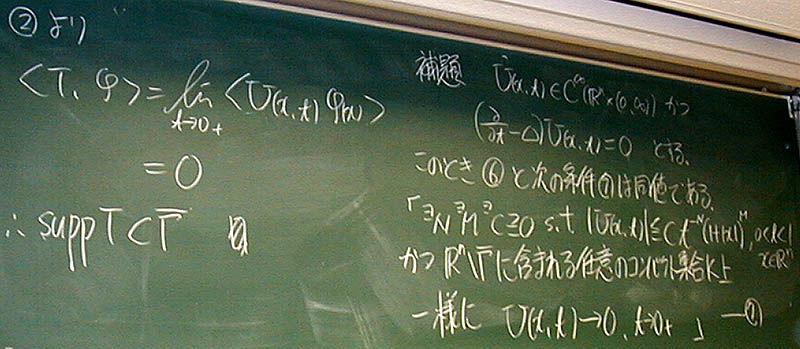 ②より
<T, φ> = lim <U(x,t) φ(x)>
t→0+
= 0
∴ supp T ⊂ Γ̅
補題 U(x,t) ∈ C^∞(R^n×(0,∞)) かつ
(∂/∂t − Δ)U(x,t) = 0 とする。
このとき ⑥ と次の条件⑦は同値である。
「∃N ∃M ∃C≧0 s.t. |U(x,t)| ≦ C t^{-N}(1+|x|)^M, 0<t<1
x∈R^n
かつ R^n\Γ̅ に含まれる任意のコンパクト集合K上
一様に U(x,t)→0, t→0+ 」 —⑦